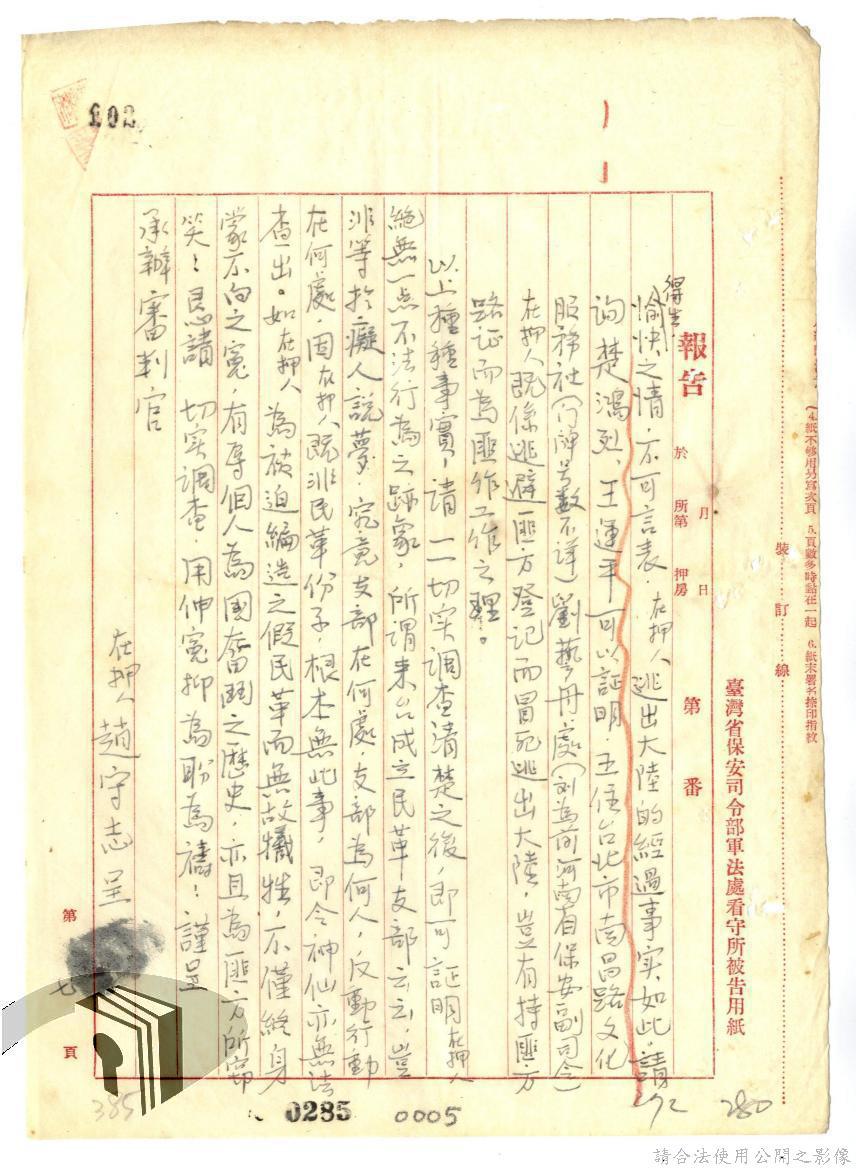 (4.紙不够用另寫次頁 5.頁數多時黏在一起 6.紙末署名捺印指紋
裝訂線
臺灣省保安司令部軍法處看守所被告用紙
報告
於 月 日
所第 押房
第 番
得生
愉快之情,不可言表.在押人逃出大陸的經過事实如此,請
詢楚鴻烈、王運平可以証明.王住台北市南昌路文化
服務社(门牌号数不詳)劉藝舟處(刘為前河南省保安副司令)
在押人既係逃避匪方登記而冒死逃出大陸,豈有持匪方
路证而為匪作工作之理。
以上種種事實,請一一切实調查清楚之後,即可証明在押人
絕無一点不法行為之跡象,所謂来台成立民革支部云云,豈
非等於癡人說夢.究竟支部在何處,支部為何人,反動行動
在何處,因在押人既非民革份子,根本無此事,即令神仙亦無法
查出。如在押人為被迫編造之假民革而無故犧牲,不僅終身
蒙不白之冤有辱個人為國奮鬥之歷史,亦且為匪方所竊
笑!恳請 切实調查.用伸冤抑為盼為禱!謹呈
承辦審判官
在押人趙守志呈
第 七 頁
203
0285
0005
385
280
292
請合法使用公開之影像